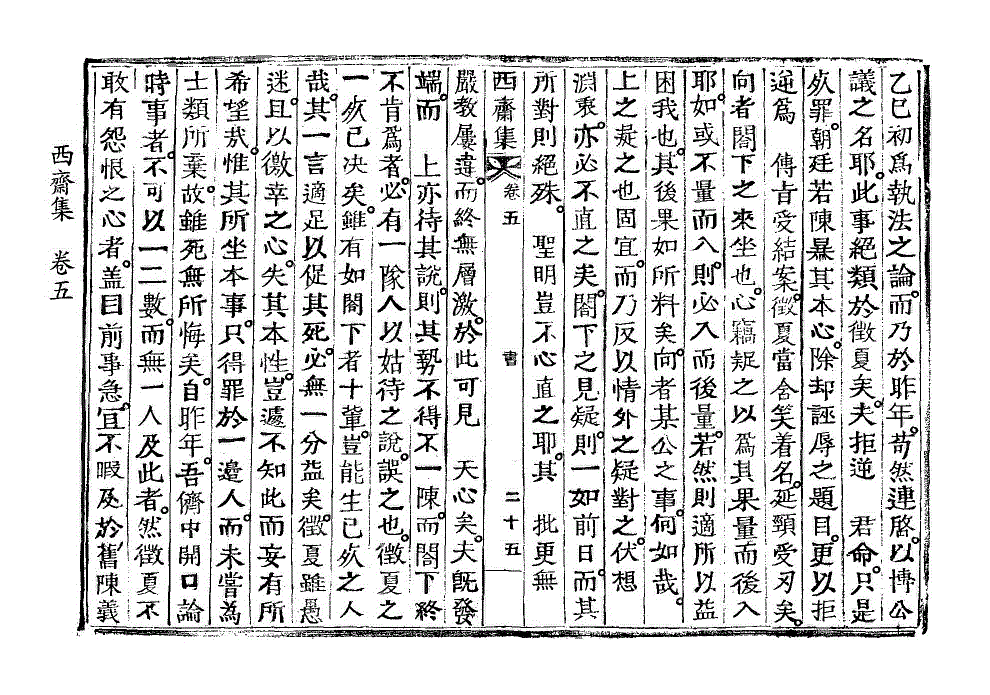 乙巳初爲執法之論。而乃於昨年。苟然連啓。以博公
議之名耶。此事絕類於徵夏矣。夫拒逆　君命。只是
死罪。朝廷若陳暴其本心。除却誣辱之題目。更以拒
逆爲　傳旨受結案。徵夏當含笑着名。延頸受刃矣。
向者閤下之來坐也。心竊疑之以爲其果量而後入
耶。如或不量而入。則必入而後量。若然則適所以益
困我也。其後果如所料矣。向者某公之事。何如哉。
上之疑之也固宜。而乃反以情外之疑對之。伏想
淵衷。亦必不直之矣。閤下之見疑。則一如前日。而其
所對則絕殊。　聖明豈不心直之耶。其　批更無
西齋集　卷五　書　二十五
嚴敎屢違。而終無層激。於此可見　天心矣。夫旣發
端。而　上亦待其說。則其勢不得不一陳。而閤下終
不肯爲者。必有一隊人以姑待之說。誤之也。徵夏之
一死已决矣。雖有如閤下者十輩。豈能生已死之人
哉。其一言適足以促其死。必無一分益矣。徵夏雖愚
迷。且以徼幸之心。失其本性。豈遽不知此而妄有所
希望哉。惟其所坐本事。只得罪於一邊人。而未嘗爲
士類所棄。故雖死無所悔矣。自昨年。吾儕中開口論
時事者。不可以一二數。而無一人及此者。然徵夏不
敢有怨恨之心者。盖目前事急。宜不暇及於舊陳義
西齋集　卷五